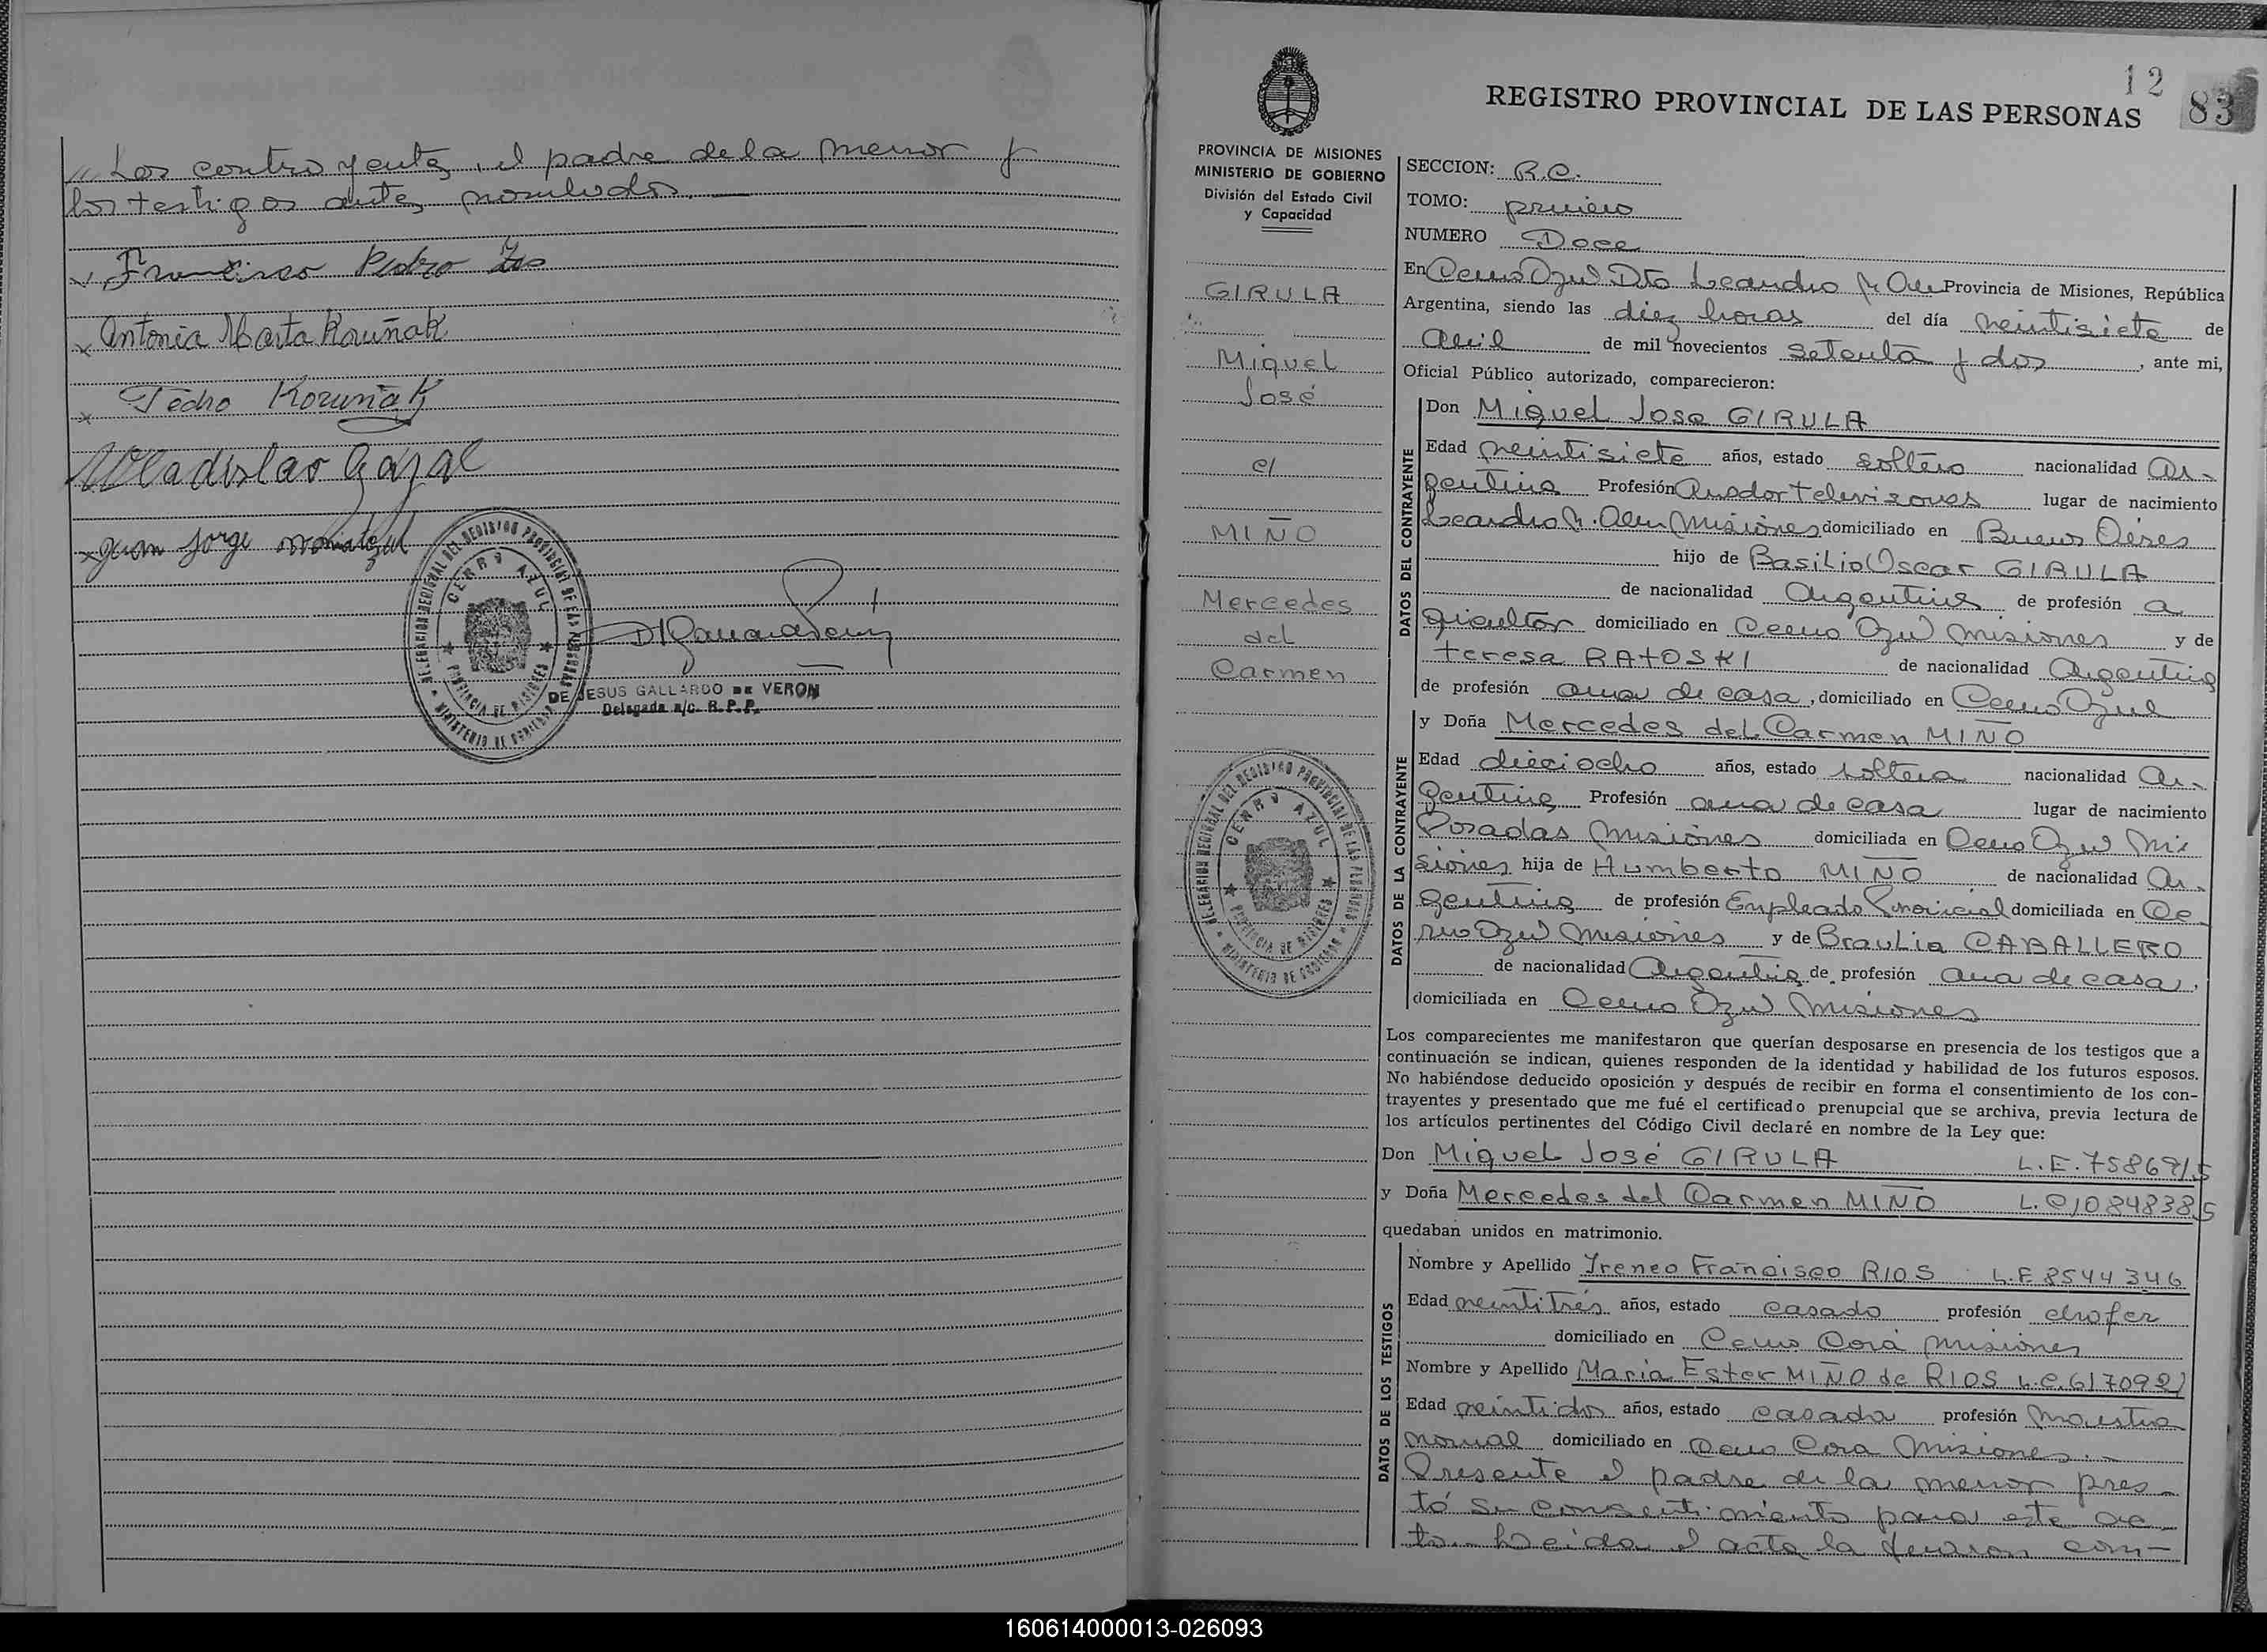 " Los contrayentes, el padre de la menor y
los testigos antes nombrados.
Francisco Pedro
x Antonia Marta Koruñak
x Pedro Koruñak
Wladislao Gazal
x Juan Jorge
DELEGACION REGIONAL DEL REGISTRO PROVINCIAL DE LAS PERSONAS
CERRO AZUL
PROVINCIA DE MISIONES
MINISTERIO DE GOBIERNO
DE JESUS GALLARDO DE VERON
Delegada a/c. R.P.P.
12
83
REGISTRO PROVINCIAL DE LAS PERSONAS
PROVINCIA DE MISIONES
MINISTERIO DE GOBIERNO
División del Estado Civil
y Capacidad
GIRULA
Miguel
José
c/
MIÑO
Mercedes
del
Carmen
DELEGACION REGIONAL DEL REGISTRO PROVINCIAL DE LAS PERSONAS
CERRO AZUL
PROVINCIA DE MISIONES
MINISTERIO DE GOBIERNO
SECCION: R.C.
TOMO: primero
NUMERO Doce
En Cerro Azul Dto Leandro N. Alem Provincia de Misiones, República
Argentina, siendo las diez horas del día veintisiete de
Abril de mil novecientos setenta y dos, ante mi,
Oficial Público autorizado, comparecieron:
DATOS DEL CONTRAYENTE
Don Miguel Jose GIRULA
Edad veintisiete años, estado soltero nacionalidad Ar-
gentina Profesión Armador televisores lugar de nacimiento
Leandro N. Alem Misiones domiciliado en Buenos Aires
hijo de Basilio Oscar GIRULA
de nacionalidad Argentina de profesión a
gricultor domiciliado en Cerro Azul Misiones y de
teresa RATOSKI de nacionalidad Argentina
de profesión ama de casa, domiciliado en Cerro Azul
DATOS DE LA CONTRAYENTE
y Doña Mercedes del Carmen MIÑO
Edad dieciocho años, estado soltera nacionalidad Ar-
gentina Profesión ama de casa lugar de nacimiento
Posadas Misiones domiciliada en Cerro Azul Mi
siones hija de Humberto MIÑO de nacionalidad Ar-
gentina de profesión Empleado Provincial domiciliada en Ce-
rro Azul Misiones y de Braulia CABALLERO
de nacionalidad Argentina de profesión ama de casa,
domiciliada en Cerro Azul Misiones
Los comparecientes me manifestaron que querían desposarse en presencia de los testigos que a
continuación se indican, quienes responden de la identidad y habilidad de los futuros esposos.
No habiéndose deducido oposición y después de recibir en forma el consentimiento de los con-
trayentes y presentado que me fué el certificado prenupcial que se archiva, previa lectura de
los artículos pertinentes del Código Civil declaré en nombre de la Ley que:
Don Miguel José GIRULA L.E. 7586915
y Doña Mercedes del Carmen MIÑO L.C 10848385
quedaban unidos en matrimonio.
DATOS DE LOS TESTIGOS
Nombre y Apellido Ireneo Francisco RIOS L.E 8544346
Edad veintitrés años, estado casado profesión chofer
domiciliado en Cerro Corá Misiones
Nombre y Apellido María Ester MIÑO de RIOS L.C. 6170921
Edad veintidos años, estado casada profesión Maestra
normal domiciliado en Cerro Corá Misiones.-
Presente el padre de la menor pres-
tó su consentimiento para este ac-
to.- Leída el acta la firman con-
160614000013-026093